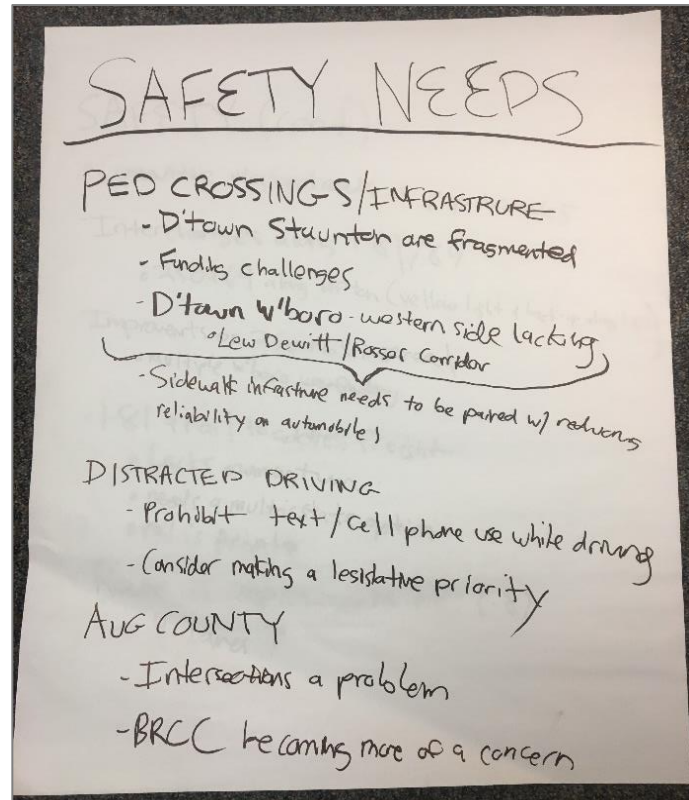 SAFETY NEEDS
PED CROSSINGS/INFRASTRURE
- D'town Staunton are fragmented
- Funding challenges
- D'town W'boro - western side lacking
° Lew Dewitt/Rosser Corridor
- Sidewalk infrasture needs to be paired w/ reducing
reliability on automobiles
DISTRACTED DRIVING
- Prohibit text/cell phone use while driving
- Consider making a legislative priority
AUG COUNTY
- Intersections a problem
- BRCC becoming more of a concern